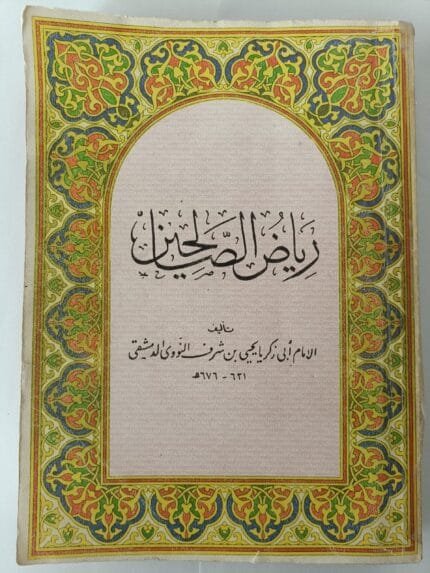 رياض الصالحين
تأليف
الامام أبي زكريا يحيى بن شرف النووي الدمشقي
٦٣١ - ٦٧٦ هـ